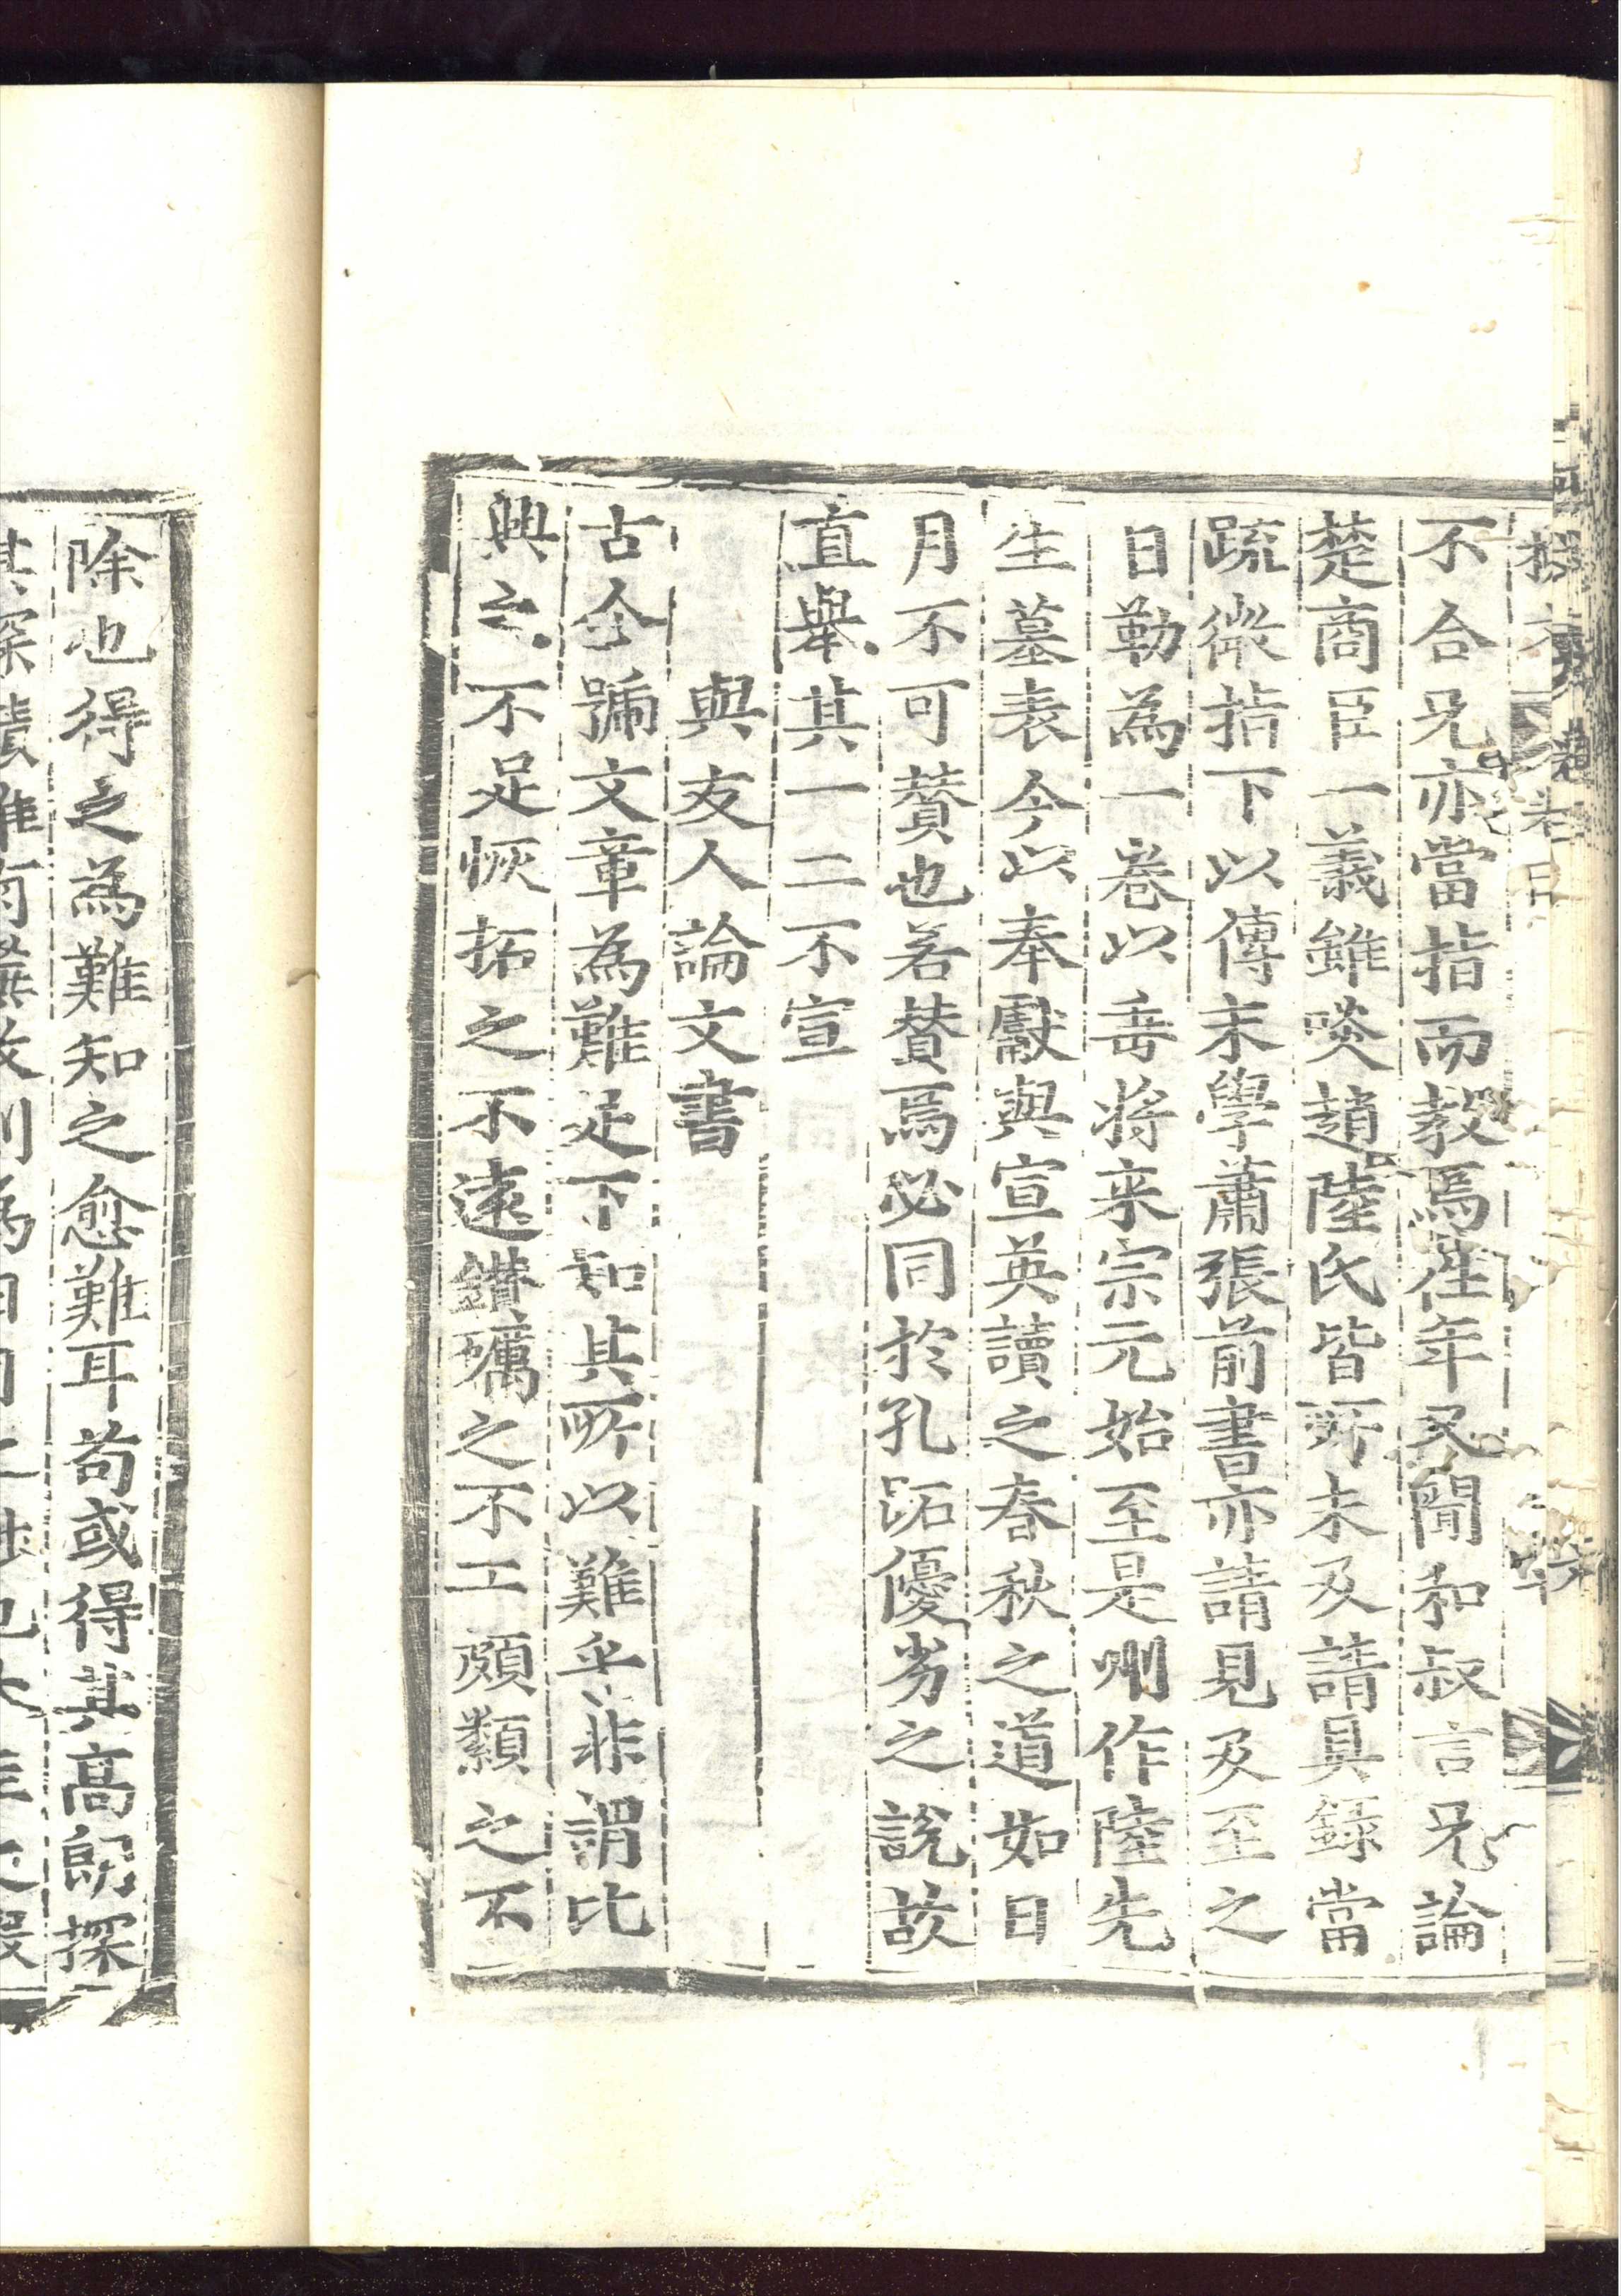 不合兄亦當指而教焉徃年又聞和叔言兄論
楚商臣一義雖啖趙陸氏皆所未及請具錄當
疏微指下以傳末學蕭張前書亦請見及至之
日勒為一卷以垂將来宗元始至是州作陸先
生墓表今以奉獻與宣英讀之春秋之道如日
月不可賛也若賛焉必同於孔跖優劣之說故
直舉其一二不宣
與友人論文書
古今號文章為難足下知其所以難乎非謂比
興之不足恢拓之不遠鑚礪之不工頗纇之不
除也得之為難知之愈難耳苟或得其高朗探